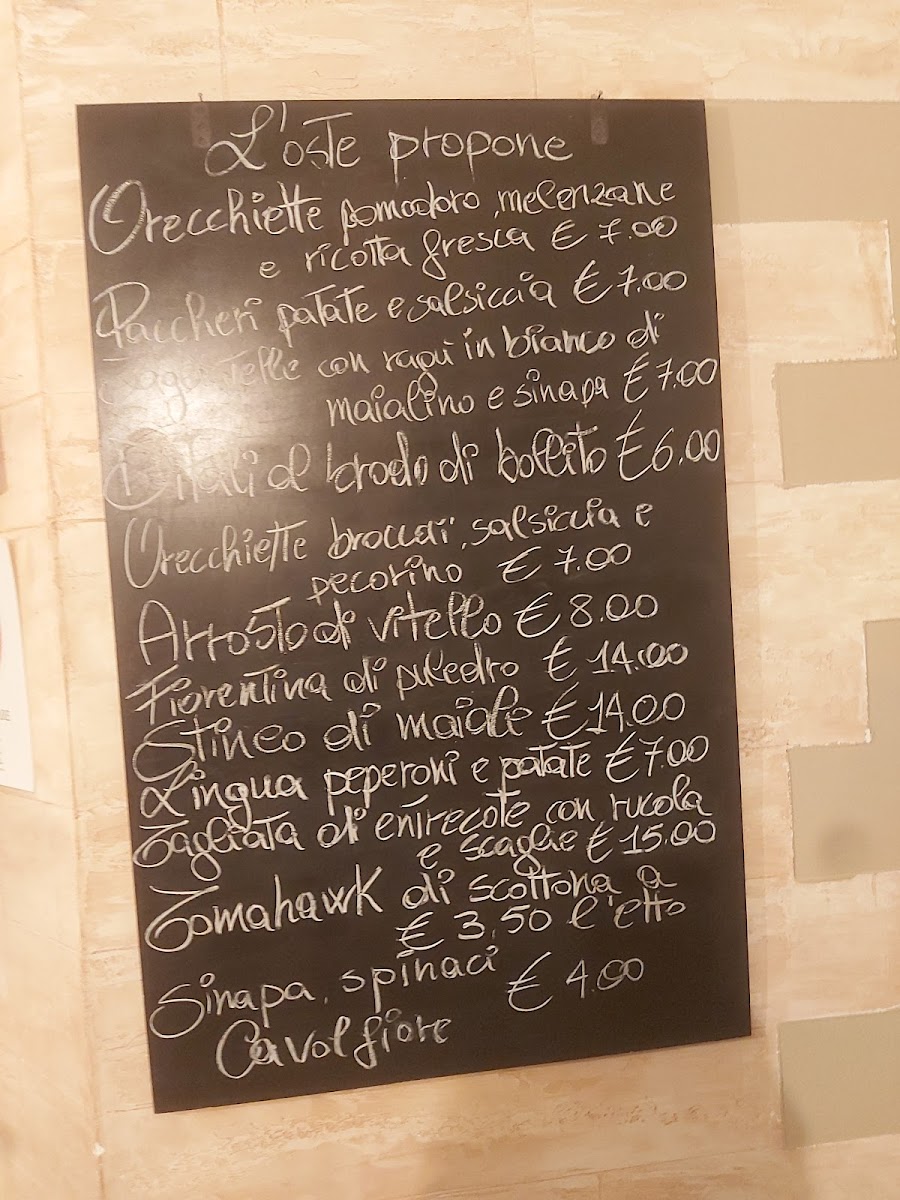 L'oste propone
Orecchiette pomodoro, melenzane
e ricotta fresca € 7.00
Paccheri patate e salsiccia € 7.00
con ragù in bianco di
maialino e sinapa € 7.00
Ditali al brodo di bollito € 6.00
Orecchiette broccoli, salsiccia e
pecorino € 7.00
Arrosto di vitello € 8.00
Fiorentina di puledro € 14.00
Stinco di maiale € 14.00
Lingua peperoni e patate € 7.00
Tagliata di entrecote con rucola
e scaglie € 15.00
Tomahawk di scottona a
€ 3,50 l'etto
Sinapa, spinaci € 4.00
Cavolfiore